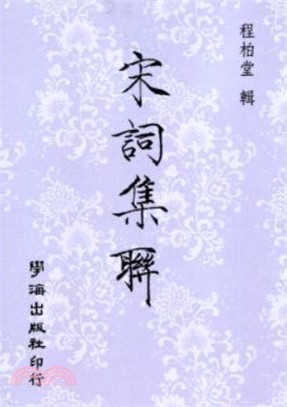 程柏堂 輯
宋詞集聯
學海出版社印行